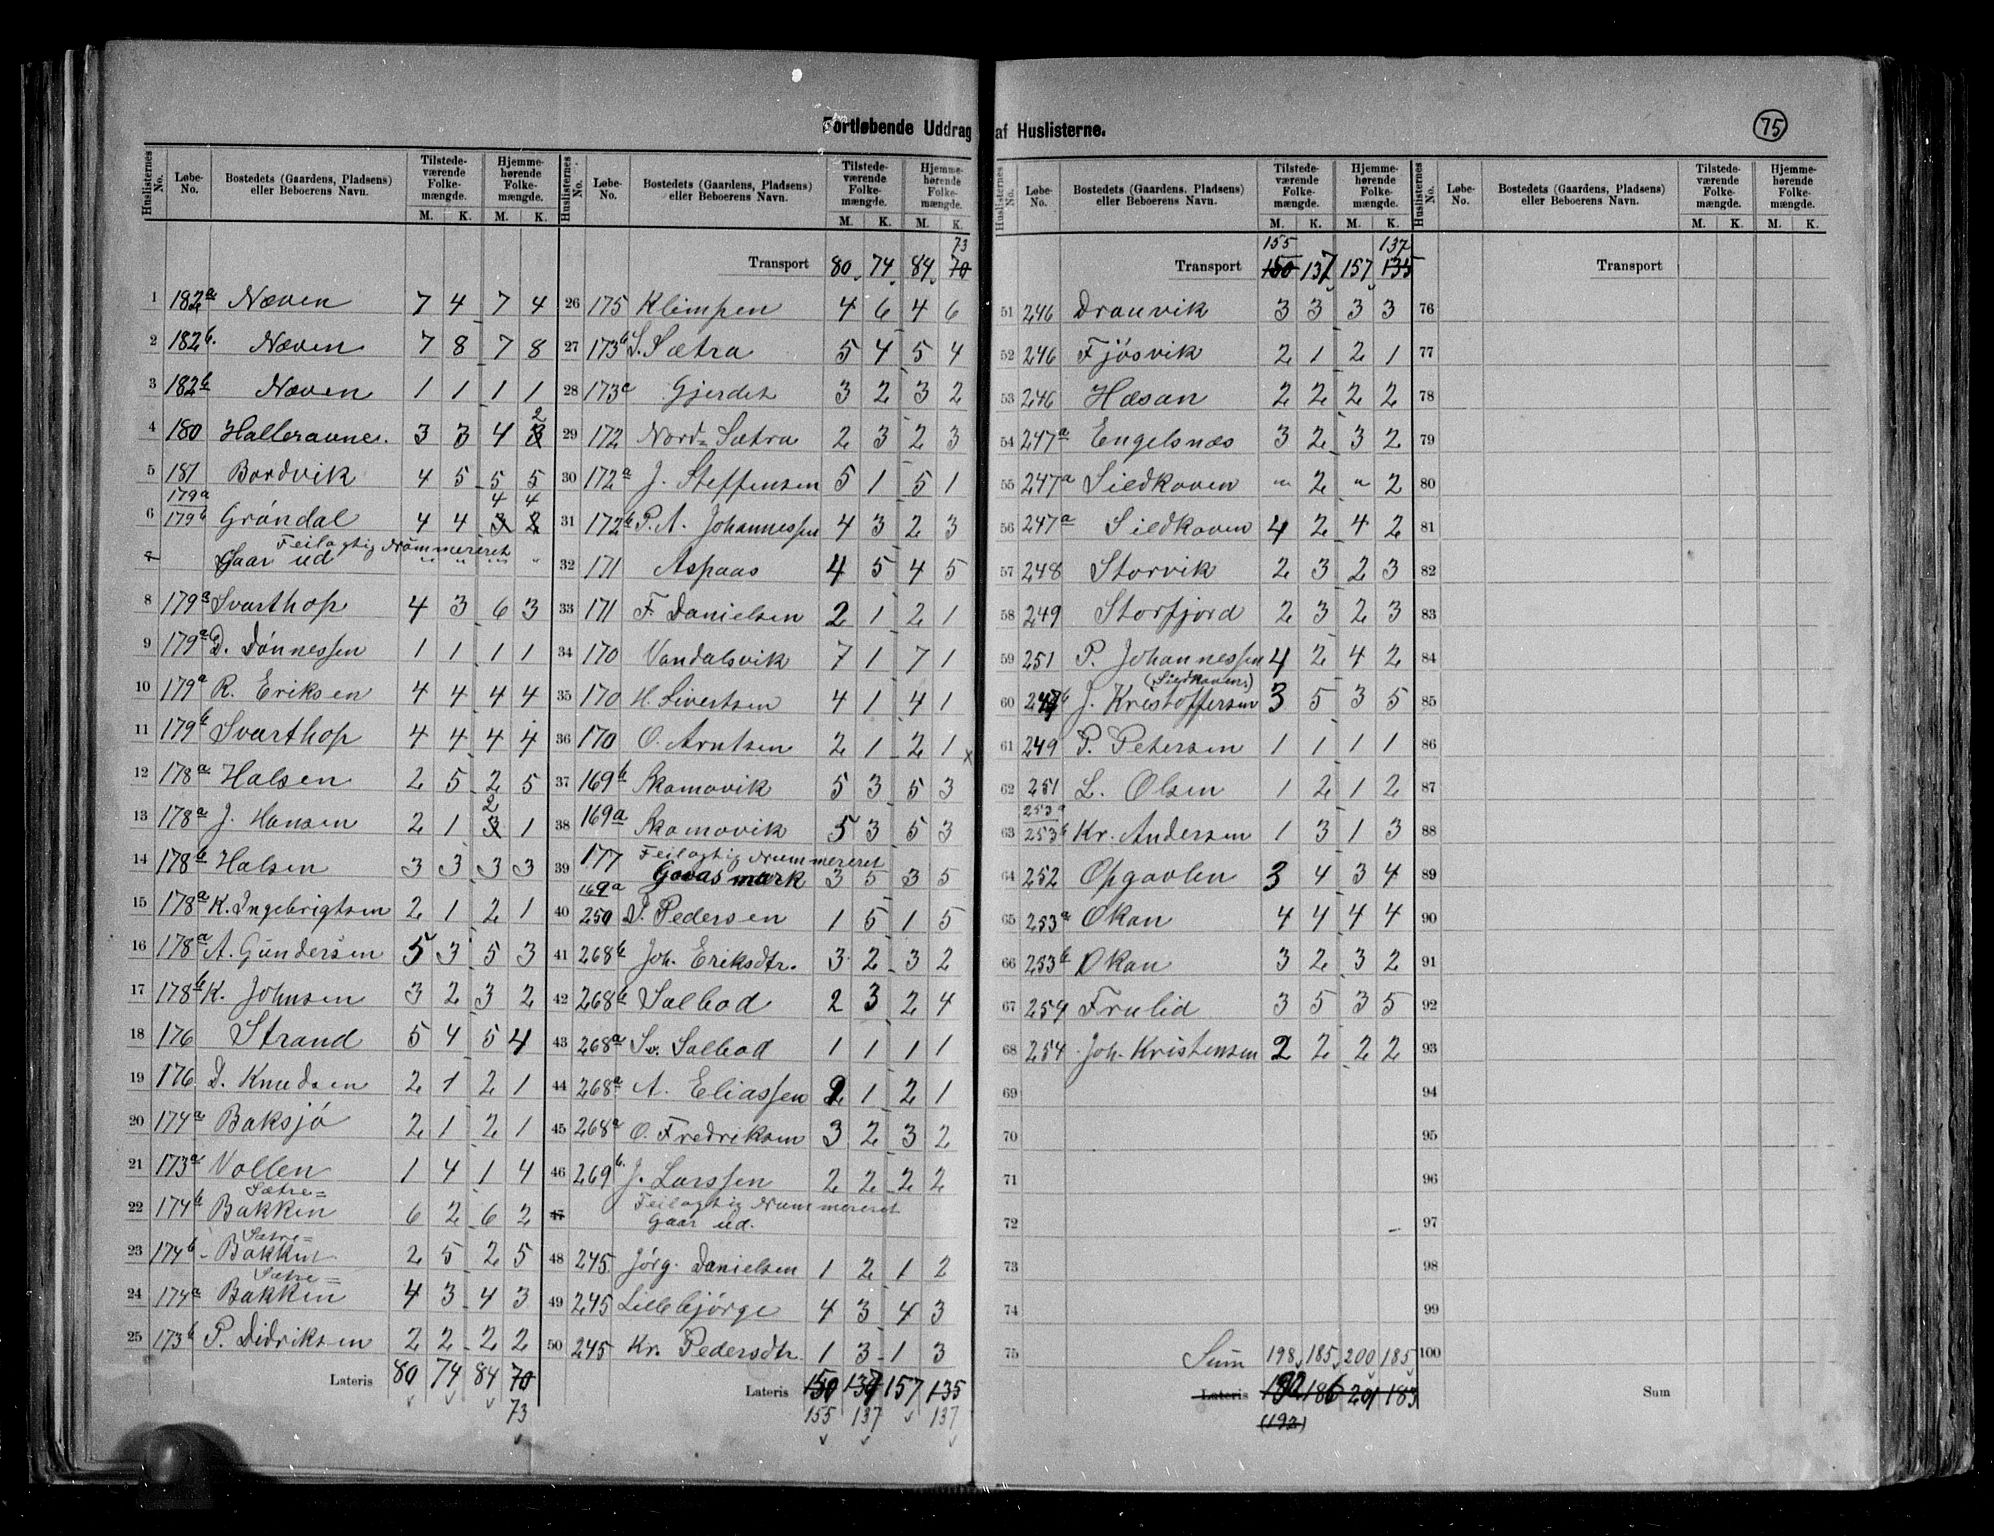 Fortløbende Uddrag af Huslisterne.
75
Huslisternes No. Løbe-No. Bostedets (Gaardens, Pladsens) eller Beboerens Navn. Tilstedeværende Folkemængde. M. K. Hjemmehørende Folkemængde. M. K.
1 182a Næven 7 4 7 4
2 182b. Næven 7 8 7 8
3 182b Næven 1 1 1 1
4 180 Halleravnes. 3 3 4 3 2
5 181 Bordvik 4 5 5 5
6 179a 179b Gröndal 4 4 3 4 2 4
7 Feilagtig nummereret Gaar ud " " " "
8 179a Svarthop 4 3 6 3
9 179a D. Dønnessen 1 1 1 1
10 179a R. Eriksen 4 4 4 4
11 179b Svarthop 4 4 4 4
12 178a Halsen 2 5 2 5
13 178a J. Hansen 2 1 3 2 1
14 178b Halsen 3 3 3 3
15 178a K. Ingebrigtsen 2 1 2 1
16 178a A. Gundersen 5 3 5 3
17 178b K. Johnsen 3 2 3 2
18 176 Strand 5 4 5 4
19 176 D. Knudsen 2 1 2 1
20 174a Baksjö 2 1 2 1
21 173a Vollen 1 4 1 4
22 174b Sætre= Bakken 6 2 6 2
23 174b Sætre= Bakken 2 5 2 5
24 174a Sætre= Bakken 4 3 4 3
25 173b P. Didriksen 2 2 2 2
Lateris 80 74 84 70
73
Huslisternes No. Løbe-No. Bostedets (Gaardens, Pladsens) eller Beboerens Navn. Tilstedeværende Folkemængde. M. K. Hjemmehørende Folkemængde. M. K.
73
Transport 80 74 84 70
26 175 Klimpen 4 6 4 6
27 173b S. Sætra 5 4 5 4
28 173a Gjerdet 3 2 3 2
29 172 Nord= Sætra 2 3 2 3
30 172a J. Steffensen 5 1 5 1
31 172b P. A. Johannessen 4 3 2 3
32 171 Aspaas 4 5 4 5
33 171 F. Danielsen 2 1 2 1
34 170 Vandalsvik 7 1 7 1
35 170 H. Sivertsen 4 1 4 1
36 170 O. Arntsen 2 1 2 1 x
37 169b Skamovik 5 3 5 3
38 169a Skamovik 5 3 5 3
39 177 Feilagtig nummereret Gaaasmark 3 5 3 5
40 169a 250 J. Pedersen 1 5 1 5
41 268b Joh. Eriksdtr. 3 2 3 2
42 268b Salbod 2 3 2 4
43 268a Sv. Salbod 1 1 1 1
44 268a A. Eliassen 2 1 2 1
45 268a O. Fredriksen 3 2 3 2
46 269b. J. Larssen 2 2 2 2
47 Feilagtig nummereret Gaar ud.
48 245 Jörg. Danielsen 1 2 1 2
49 245 Lillebjörge 4 3 4 3
50 245 Kr. Pedersdtr. 1 3 1 3
Lateris 150 137 157 135
155 137 137
Huslisternes No. Løbe-No. Bostedets (Gaardens, Pladsens) eller Beboerens Navn. Tilstedeværende Folkemængde. M. K. Hjemmehørende Folkemængde. M. K.
155 137
Transport 150 137 157 135
51 246 Drauvik 3 3 3 3
52 246 Fjösvik 2 1 2 1
53 246 Hæsan 2 2 2 2
54 247a Engelsnæs 3 2 3 2
55 247a Sildkoven " 2 " 2
56 247a Sildkoven 4 2 4 2
57 248 Storvik 2 3 2 3
58 249 Storfjord 2 3 2 3
59 251 P. Johannessen 4 2 4 2
60 247b (Sildkoven) J. Kristoffersen 3 5 3 5
61 249 P. Petersen 1 1 1 1
62 251 L. Olsen 1 2 1 2
63 253a 253b Kr. Andersen 1 3 1 3
64 252 Opgavlen 3 4 3 4
65 253a Okan 4 4 4 4
66 253b Okan 3 2 3 2
67 254 Frulid 3 5 3 5
68 254 Joh. Kristensen 2 2 2 2
69
70
71
72
73
74
75 Sum 198 185 200 185
Lateris 192 186 201 183
(192)
Huslisternes No. Løbe-No. Bostedets (Gaardens, Pladsens) eller Beboerens Navn. Tilstedeværende Folkemængde. M. K. Hjemmehørende Folkemængde. M. K.
Transport
76
77
78
79
80
81
82
83
84
85
86
87
88
89
90
91
92
93
94
95
96
97
98
99
100
Sum